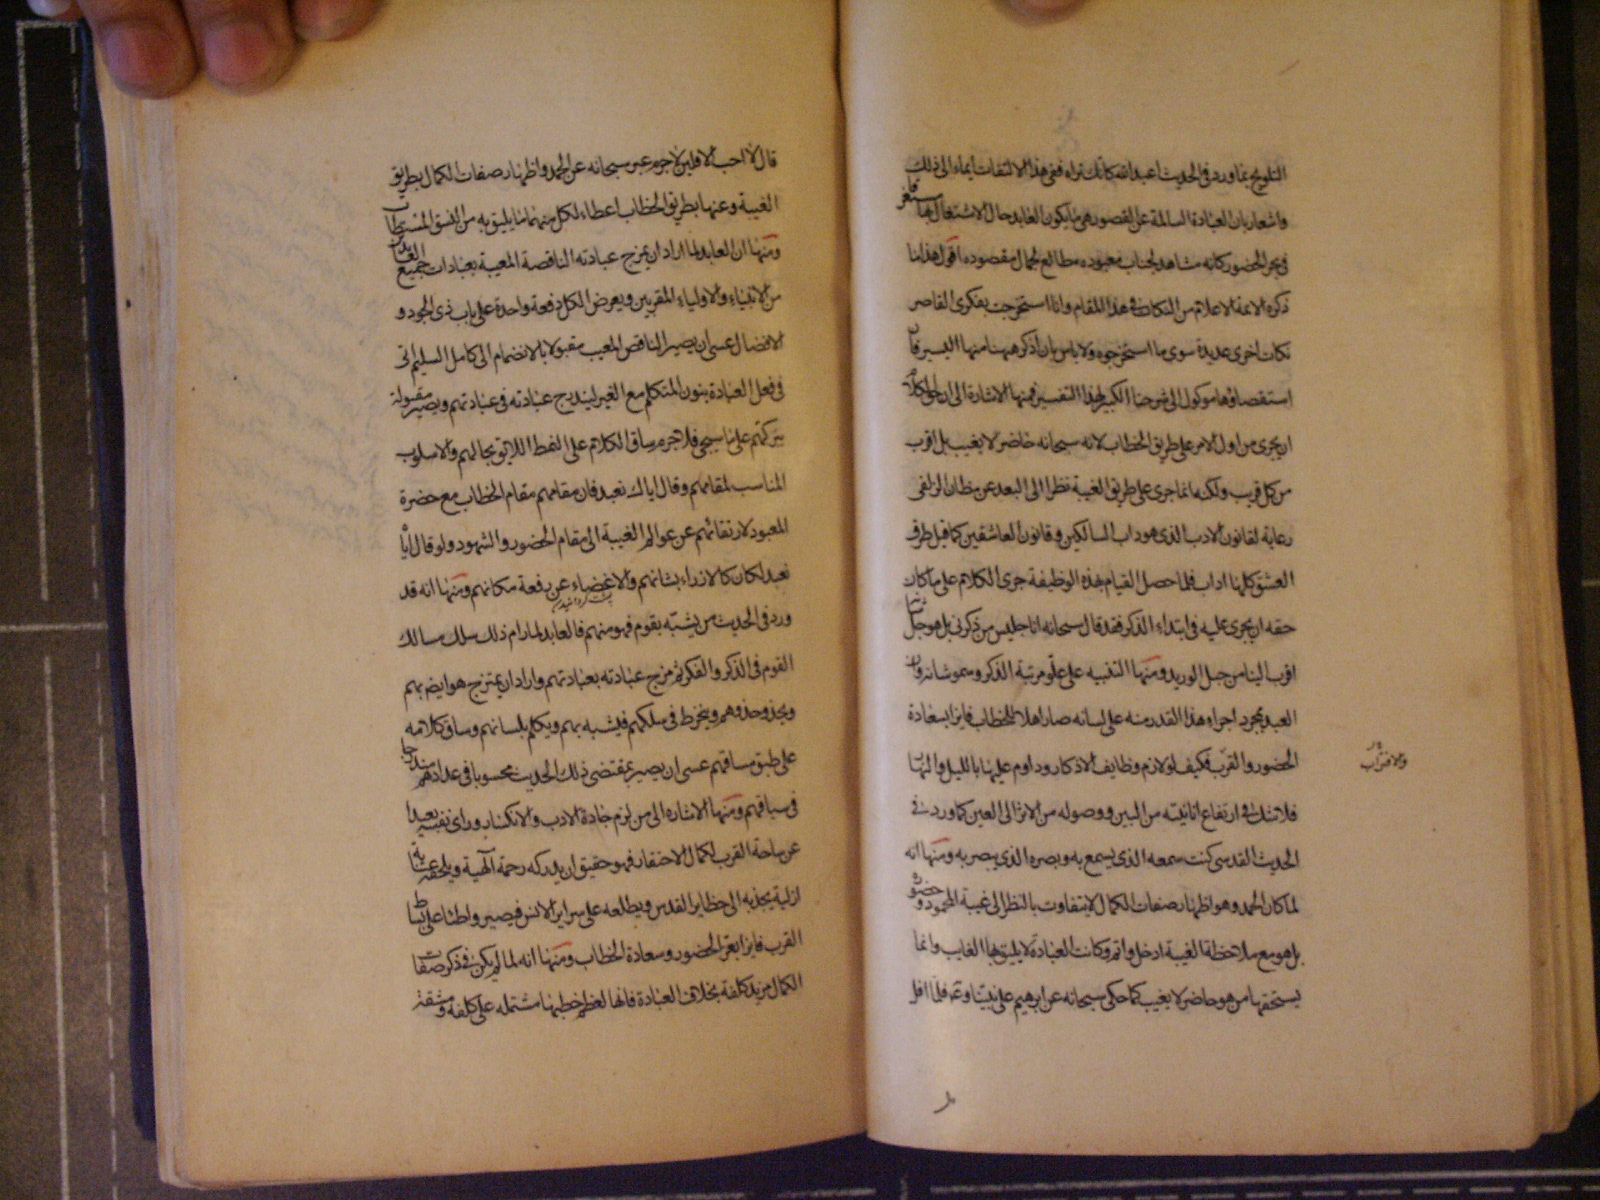 التلويح بما ورد في الحديث اعبد الله كانك تراه ففي هذا الالتفات ايماء الى ذلك
واشعار بان العبادة السالمة عن القصور هي ما يكون العابد حال الاشتغال بها مستغرقا
في بحر الحضور كانه مشاهد لجناب معبوده مطالع لجمال مقصوده اقول هذا ما
ذكره الائمة الاعلام من النكات في هذا المقام وانا استخرجت بفكرى القاصر
نكات اخرى عديدة سوى ما استخرجوه ولا باس بان اذكر ههنا منها اليسير فان
استقصاؤها موكول الى شرحنا الكبير لهذا التفسير فمنها الاشارة الى ان حق الكلام
ان يجرى من اول الامر على طريق الخطاب لانه سبحانه حاضر لا يغيب بل اقرب
من كل قريب ولكنه انما جرى على طريق الغيبة نظرا الى البعد عن مظان الزلفى
رعاية لقانون الادب الذى هو داب السالكين وقانون العاشقين كما قيل طرق
العشق كلها اداب فلما حصل القيام بهذه الوظيفة جرى الكلام على ما كان
حقه ان يجرى عليه في ابتداء الذكر فقد قال سبحانه انا جليس من ذكرنى بل هو جل شانه
اقرب الينا من حبل الوريد ومنها التنبيه على علو مرتبة الذكر وسمو شانه وان
العبد بمجرد اجراء هذا القدر منه على لسانه صار اهلا للخطاب فايزا بسعادة
الحضور والقرب فكيف لو لازم وظايف الاذكار وداوم عليها بالليل والنهار
والاقتراب
فلا شك في ارتفاع انانيته من البين ووصوله من الاثر الى العين كما ورد في
الحديث القدسى كنت سمعه الذى يسمع به وبصره الذى يبصر به ومنها انه
لما كان الحمد وهو اظهار صفات الكمال لا يتفاوت بالنظر الى غيبة المحمود وحضوره
بل هو مع ملاحظة الغيبة ادخل واتم وكانت العبادة لا يليق بها الغايب وانما
يستحقها من هو حاضر لا يغيب كما حكى سبحانه عن ابرهيم على نبينا وعم فلما افل
قال لا احب الافلين لا جرم عبر سبحانه عن الحمد واظهار صفات الكمال بطريق
الغيبة وعنها بطريق الخطاب اعطاء لكل منهما ما يليق به من النسق المستطاب
ومنها ان العابد لما اراد ان يمزج عبادته الناقصة المعيبة بعبادات جميع العابدين
من الانبياء والاولياء المقربين ويعرض الكل دفعة واحدة على باب ذى الجود و
الافضال عسى ان يصير الناقص المعيب مقبولا بالانضمام الى كامل السليم اتى
في فعل العبادة بنون المتكلم مع الغير ليندرج عبادته في عبادتهم ويصير مقبولة
ببركتهم على ما سيجئ فلا جرم ساق الكلام على النمط اللايق بحالهم والاسلوب
المناسب لمقامهم وقال اياك نعبد فان مقامهم مقام الخطاب مع حضرة
المعبود لارتقائهم عن عوالم الغيبة الى مقام الحضور والشهود ولو قال اياه
نعبد لكان كالازراء بشانهم والاغضاء عن رفعة مكانهم ومنها انه قد
ورد في الحديث من يشبه بقوم فهو منهم فالعابد لما رام ذلك سلك مسالك
القوم في الذكر والفكر ثم مزج عبادته بعبادتهم واراد ان يمتزج هو ايضا بهم
ويحذو حذوهم وينخرط في سلكهم فيشبه بهم ويكلم بلسانهم وساق كلامه
على طبق مساقهم عسى ان يصير بمقتضى ذلك الحديث محسوبا في عدادهم مندرجا
في سياقهم ومنها الاشاره الى من لزم جادة الادب والانكسار وراى نفسه بعيدا
عن ساحة القرب لكمال الاحتقار فهو حقيق ان يدركه رحمة آلهية ويلحقه عناية
ازلية يجذبه الى حظاير القدس ويطالعه على سراير الانس فيصير واطئا على بساط
القرب فايزا بعز الحضور وسعادة الخطاب ومنها انه لما لم يكن في ذكر صفات
الكمال مزيد كلفة بخلاف العبادة فانها لعظم خطبها مشتمله على كلفة ومشقة